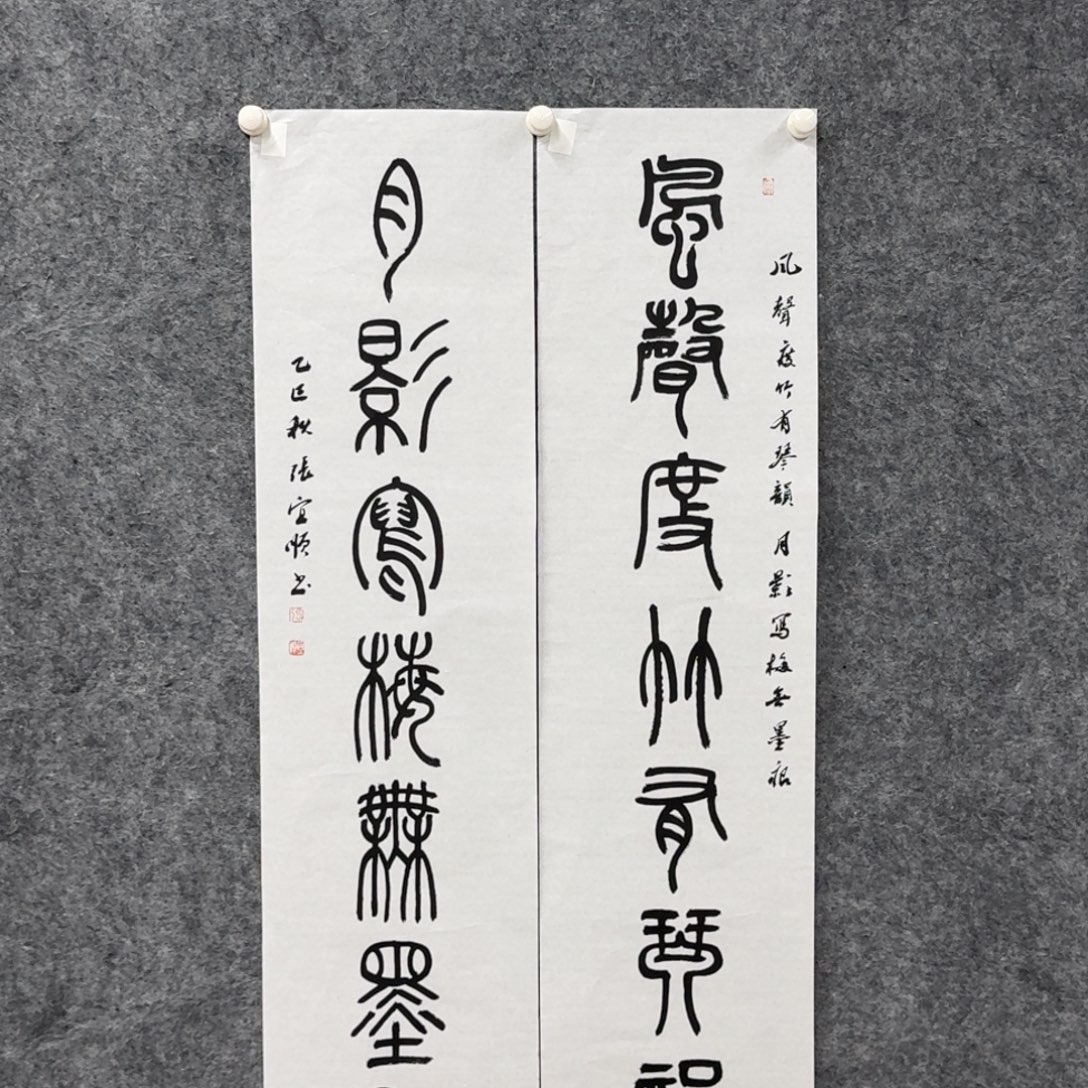 風聲度竹有琴韻月影寫梅無墨痕
風聲度竹有琴
月影寫梅無墨
乙巳秋張宜順书